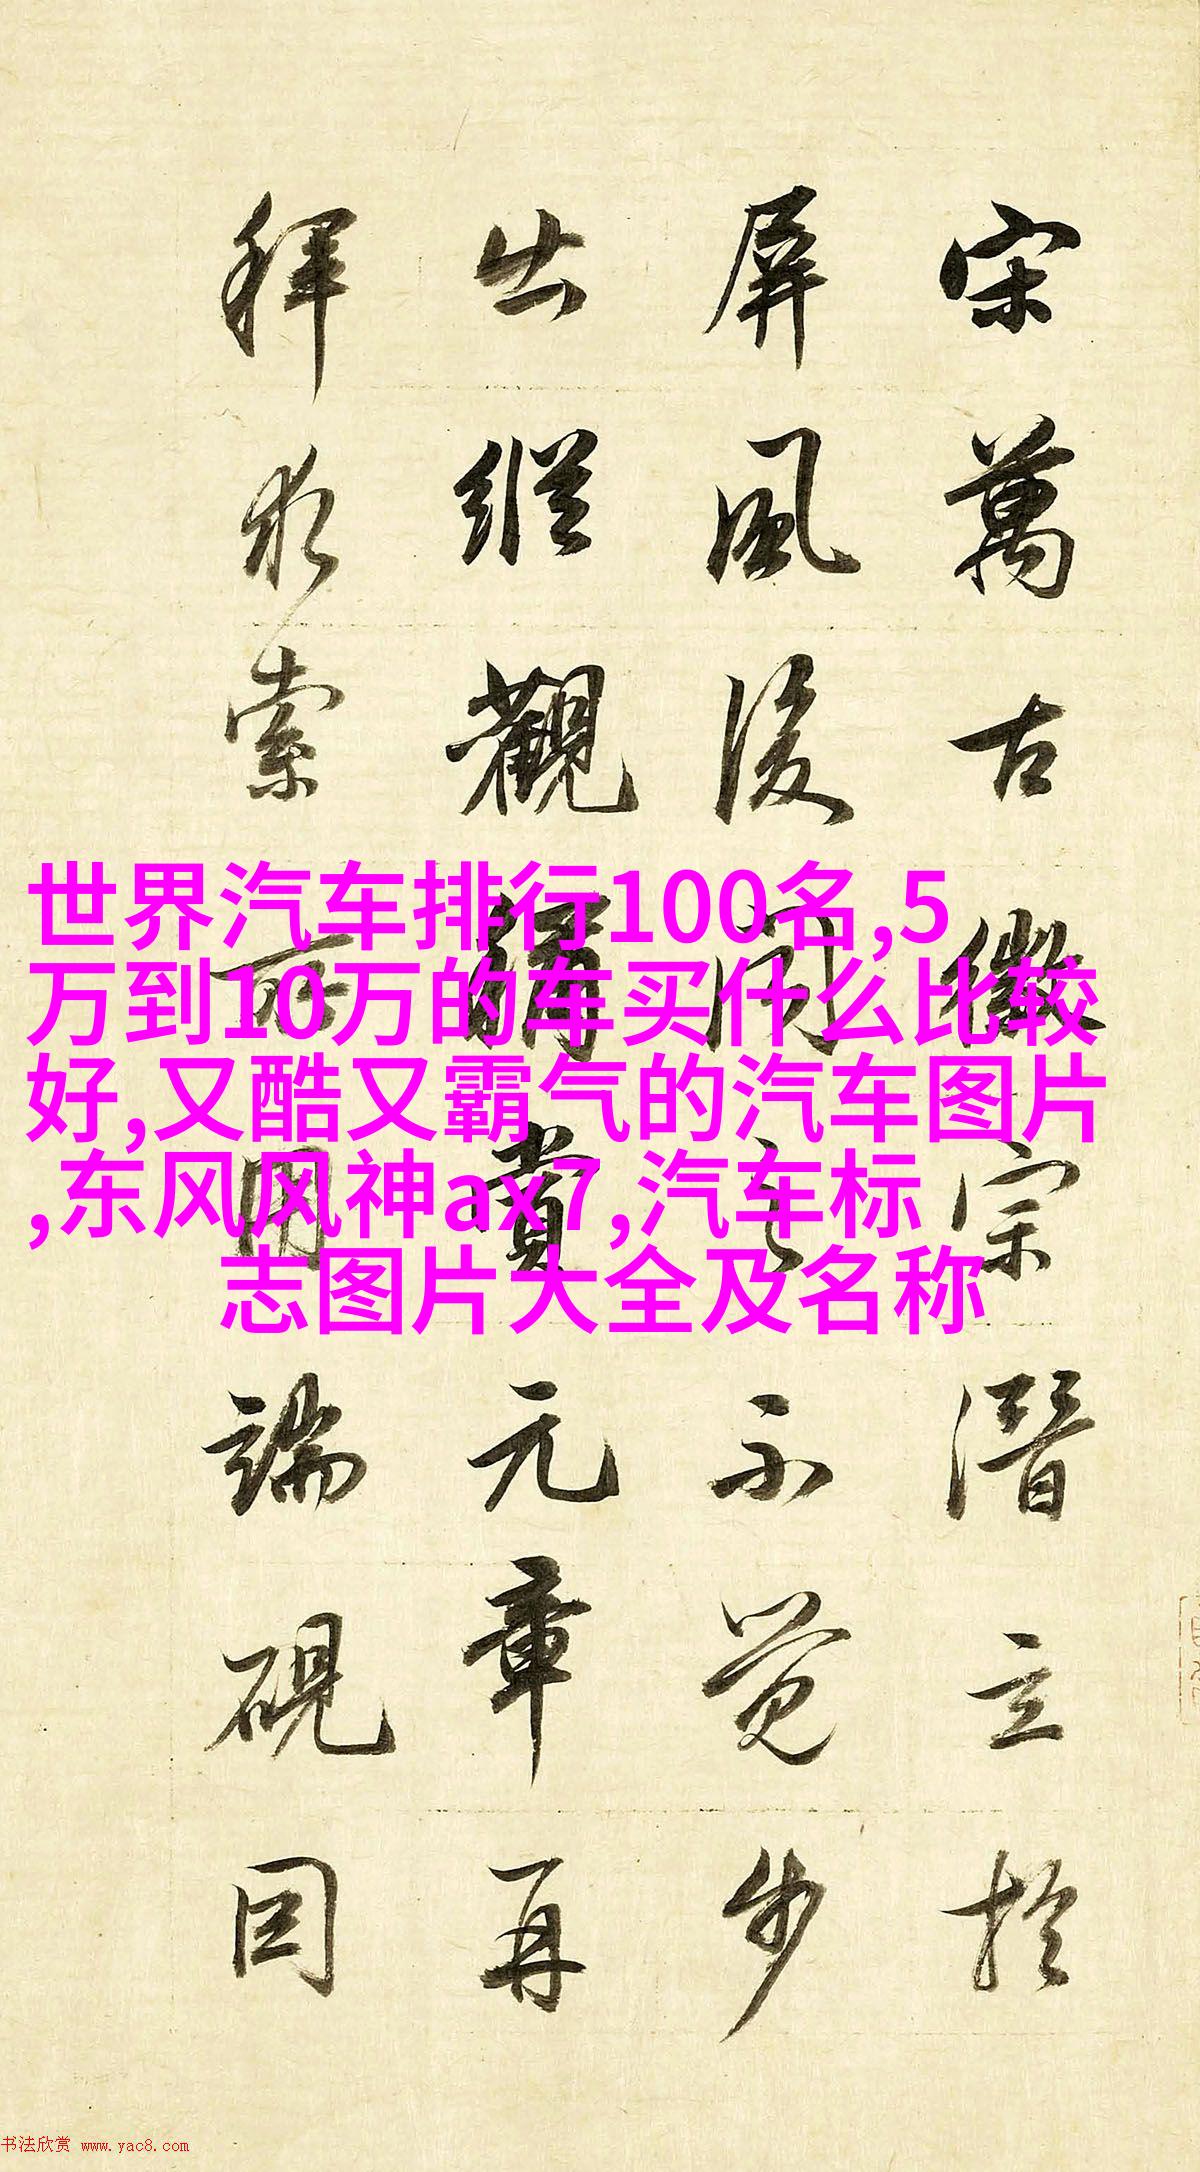 宋萬古徽宗潛立於
屏風後聞之不覺步
出縱觀稱賞元章再
拜求索所用端硯因
世界汽车排行100名,5
万到10万的车买什么比较
好,又酷又霸气的汽车图片
,东风风神ax7,汽车标
志图片大全及名称
书法欣赏 www.yac8.com